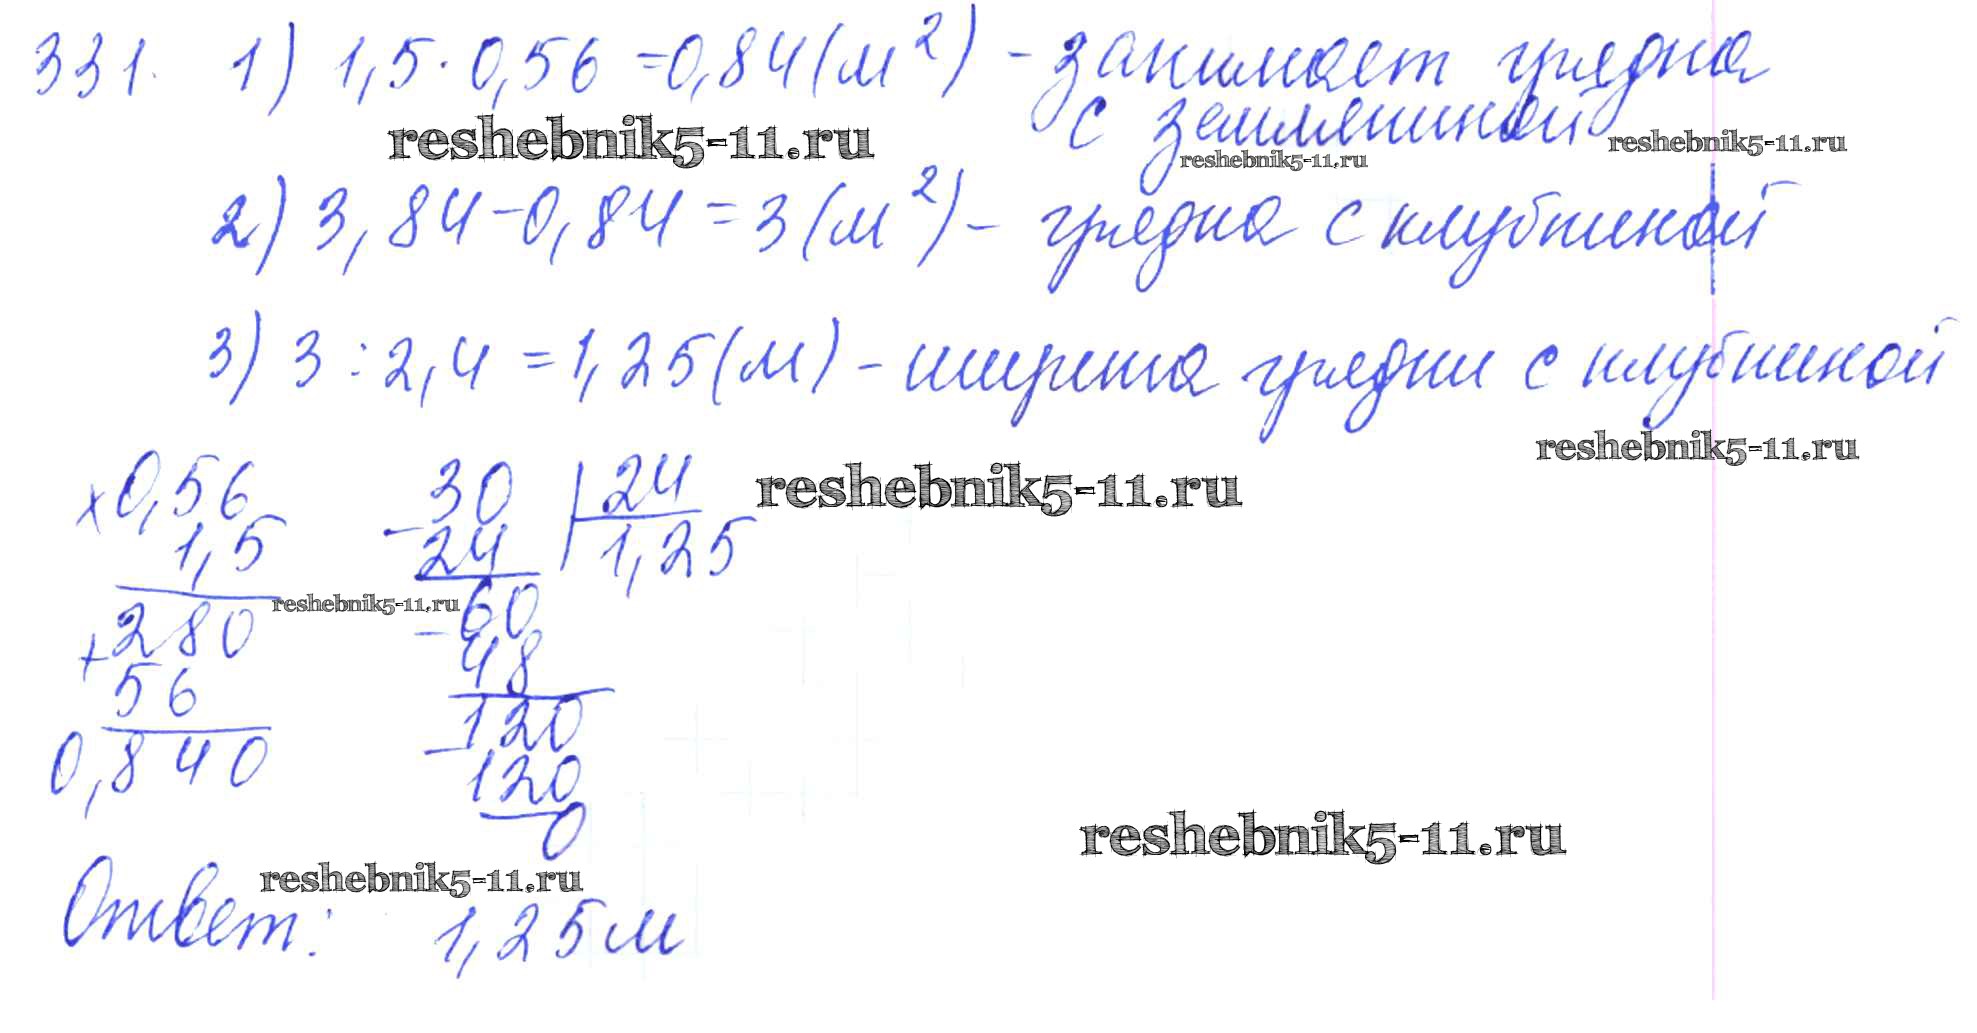 331. 1) 1,5 · 0,56 = 0,84 (м²) - занимает грядка
с земляникой
reshebnik5-11.ru
reshebnik5-11.ru
reshebnik5-11.ru
2) 3,84 - 0,84 = 3 (м²) - грядка с клубникой
3) 3 : 2,4 = 1,25 (м) - ширина грядки с клубникой
reshebnik5-11.ru
× 0,56
1,5
reshebnik5-11.ru
+ 280
56
0,840
- 30 | 24
24 | 1,25
- 60
48
- 120
120
0
reshebnik5-11.ru
reshebnik5-11.ru
reshebnik5-11.ru
Ответ: 1,25 м